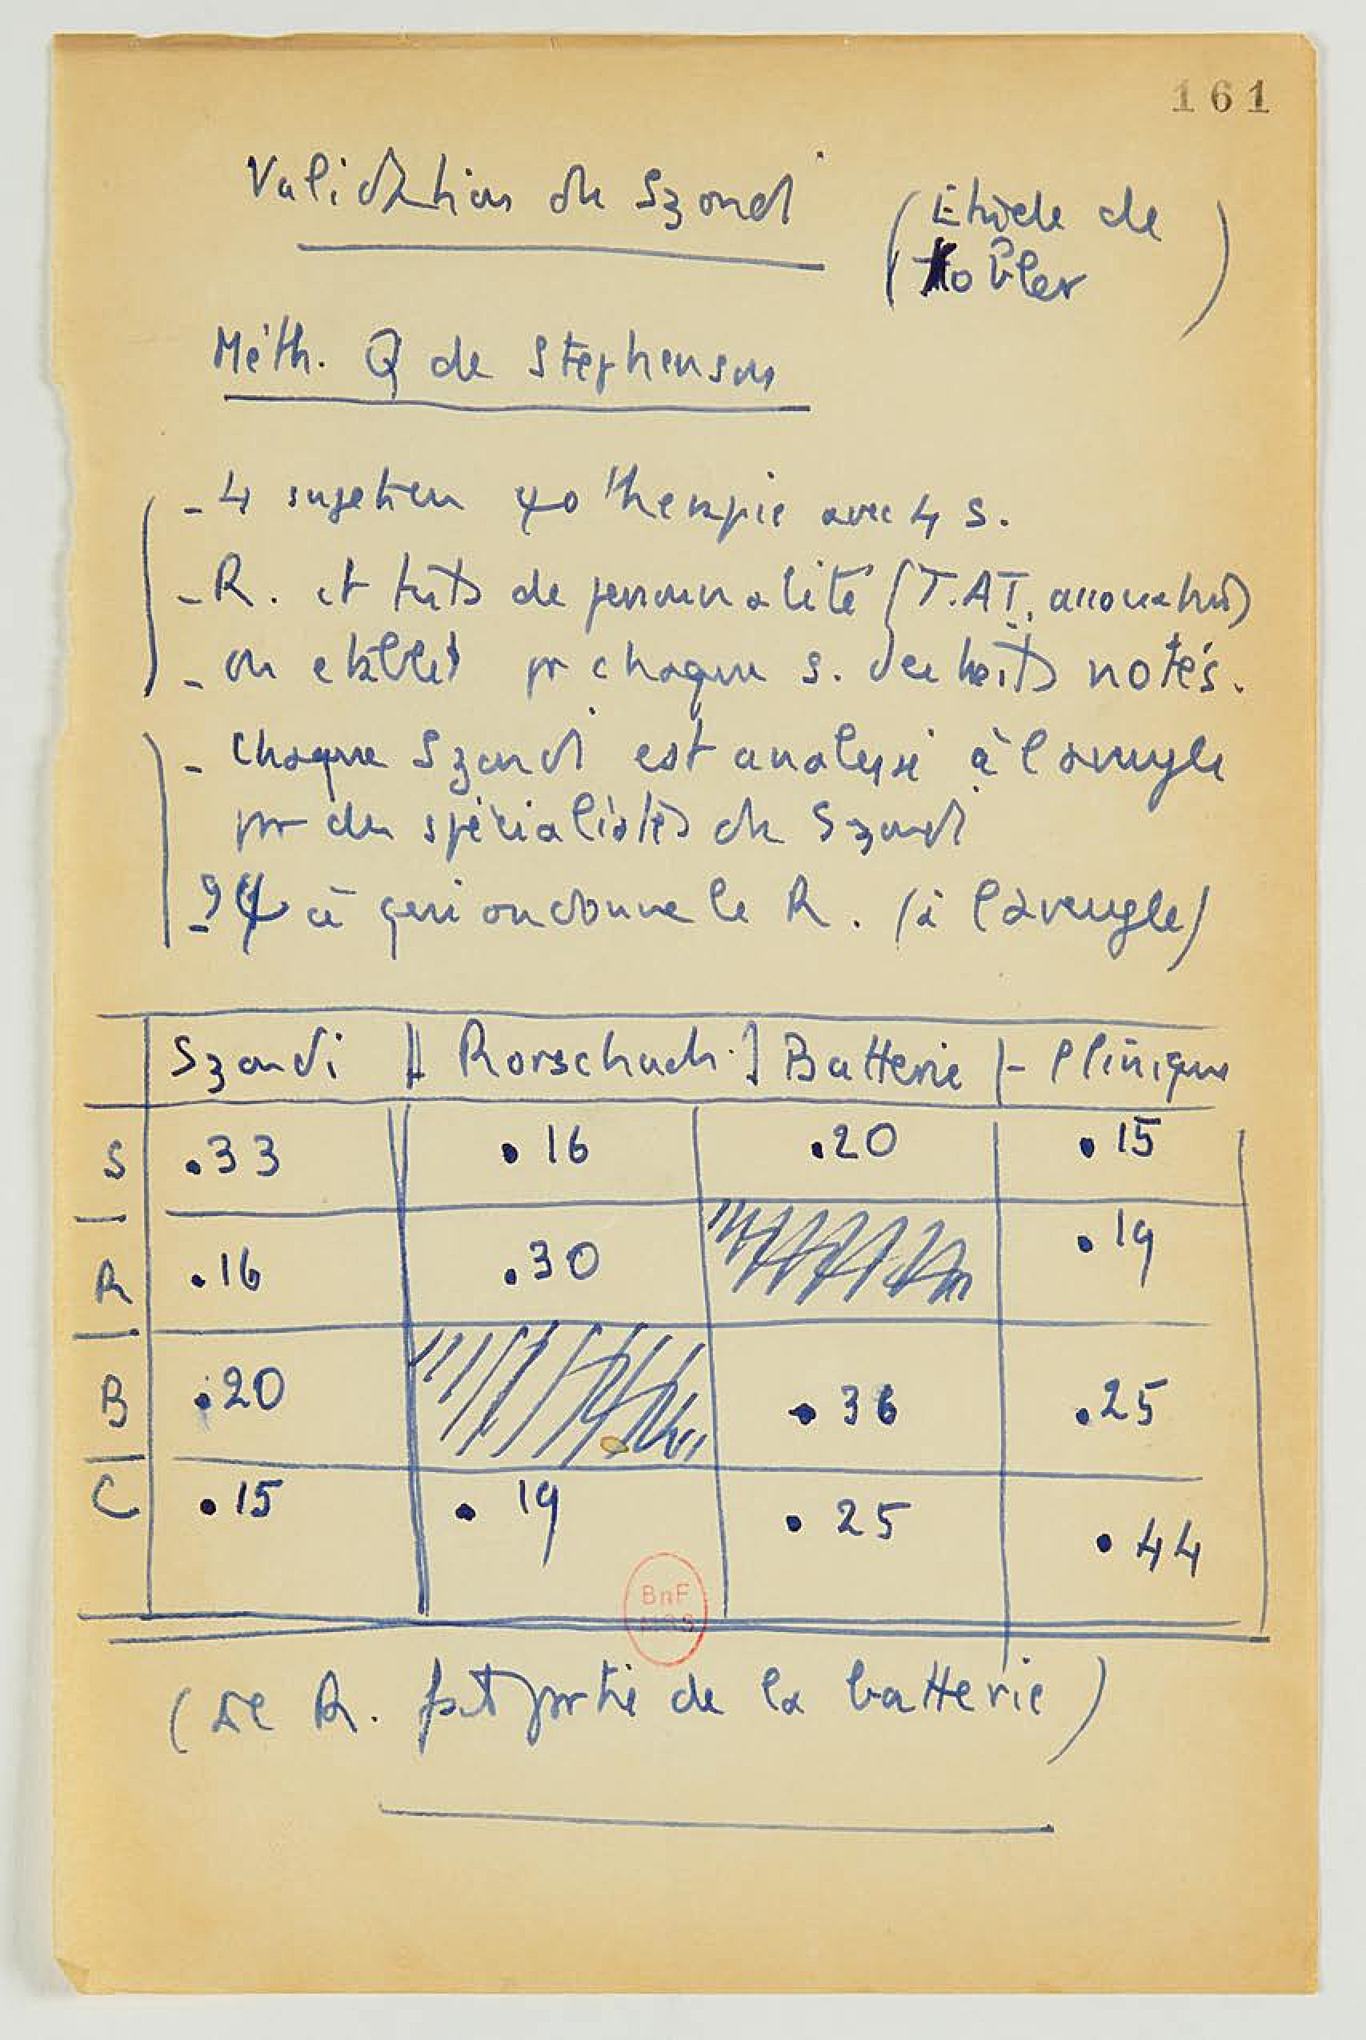 161
Validation du Szondi
(Etude de
Kobler)
Méth. Q de Stephenson
- 4 sujets en ψothérapie avec 4 S.
- R. et tests de personnalité (T.A.T,
- on établit pr chaque s. des traits notés.
- Chaque Szondi est analysé à l'aveugle
par des spécialistes du Szondi
- 9 ψ à qui on donne le R. (à l'aveugle)
Szondi Rorschach. Batterie Clinique
S .33 .16 .20 .15
R .16 .30 .19
B .20 .36 .25
C .15 .19 .25 .44
BnF
MSS
(Le R. fait partie de la batterie)